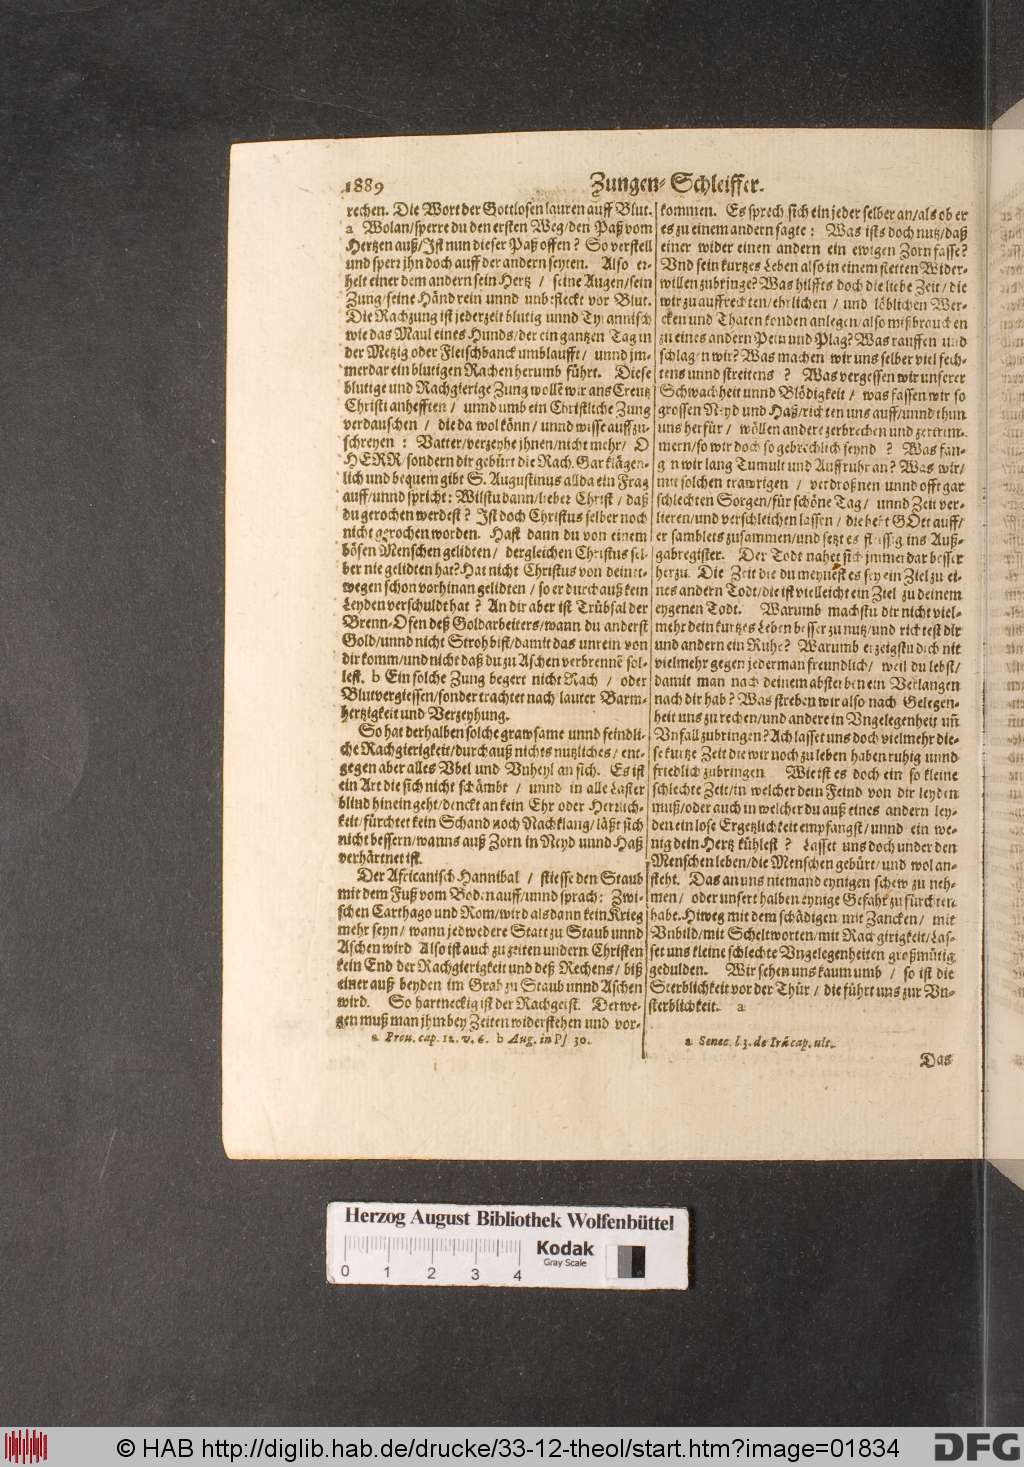 1889
Zungen-Schleiffer.
rechen. Die Wort der Gottlosen lauren auff Blut.
a Wolan/sperre du den ersten Weg/den Paß vom
Hertzen auß/Ist nun dieser Paß offen? So verstell
und sperr jhn doch auff der andern seyten. Also er-
helt einer dem andern sein Hertz / seine Augen/sein
Zung/seine Händ rein unnd unbefleckt vor Blut.
Die Rachzung ist jederzeit blutig unnd Tyrannisch
wie das Maul eines Hunds/der ein gantzen Tag in
der Metzig oder Fleischbanck umblaufft/ unnd jm-
merdar ein blutigen Rachen herumb führt. Diese
blutige und Rachgierige Zung wollẽ wir ans Creutz
Christi anhefften / unnd umb ein Christliche Zung
verdauschen / die da wol könn/ unnd wisse auffzu-
schreyen : Vatter/verzeyhe jhnen/nicht mehr/ O
HERR/sondern dir gebürt die Rach. Gar klägen-
lich und bequem gibt S. Augustinus allda ein Frag
auff/unnd spricht: Wilstu dann/lieber Christ/ daß
du gerochen werdest? Ist doch Christus selber noch
nicht gerochen worden. Hast dann du von einem
bösen Menschen gelidten/ dergleichen Christus sel-
ber nie gelidten hat? Hat nicht Christus von deinet-
wegen schon vorhinan gelidten/so er durchauß kein
Leyden verschuldt hat ? An dir aber ist Trübsal der
Brenn-Ofen deß Goldarbeiters/wann du anderst
Gold/unnd nicht Stroh bist/damit das unrein von
dir komm/und nicht daß du zu Aschen verbrennẽ sol-
lest. b Ein solche Zung begert nicht Rach / oder
Blutvergiessen/sonder trachtet nach lauter Barm-
hertzigkeit und Verzeyhung.
So hat derhalben solche grawsame unnd feindli-
che Rachgierigkeit/durchauß nichts nutzliches/ ent-
gegen aber alles Vbel und Vnheyl an sich. Es ist
ein Art die sich nicht schämbt / unnd in alle Laster
blind hinein geht/denckt an kein Ehr oder Herrlich-
keit/fürchtet kein Schand noch Nachklang/läßt sich
nicht bessern/wanns auß Zorn in Neyd unnd Haß
verhärtnet ist.
Der Africanisch Hannibal / stiesse den Staub
mit dem Fuß vom Boden auff/unnd sprach: Zwi-
schen Carthago und Rom/wird als dann kein Krieg
mehr seyn/ wann jedwedere Statt zu Staub unnd
Aschen wird Also ist auch zu zeiten undern Christen
kein End der Rachgierigkeit und deß Rechens/ biß
einer auß beyden im Grab zu Staub unnd Aschen
wird. So hartneckig ist der Rachgeist. Derwe-
gen muß man jhm bey Zeiten widerstehen und vor-
a Prou. cap. 12. v. 6. b Aug. in Ps 30.
kommen. Es sprech sich ein jeder selber an/als ob er
es zu einem andern sagte : Was ists doch nutz/daß
einer wider einen andern ein ewigen Zorn fasse?
Vnd sein kurtzes Leben also in einem stetten Wider-
willen zubringe? Was hilffts doch die liebe Zeit/die
wir zu auffrechten/ehrlichen / und löblichen Wer-
cken und Thaten konden anlegen/also mißbrauchen
zu eines andern Pein und Plag? Was rauffen und
schlagen wir? Was machen wir uns selber viel fech-
tens unnd streitens ? Was vergessen wir unserer
Schwachheit unnd Blödigkeit / was fassen wir so
grossen Neyd und Haß/richten uns auff/unnd thun
uns herfür / wöllen andere zerbrechen und zertrim-
mern/so wir doch so gebrechlich seynd ? Was fan-
gen wir lang Tumult und Auffruhr an? Was wir/
mit solchen trawrigen / verdroßnen unnd offt gar
schlechten Sorgen/für schöne Tag / unnd Zeit ver-
lieren/und verschleichen lassen / die hebt GOtt auff/
er samblets zusammen/und setzt es fleissig ins Auß-
gabregister. Der Todt nahet sich jmmerdar besser
herzu. Die Zeit die du meynest es sey ein Ziel zu ei-
nes andern Todt/die ist vielleicht ein Ziel zu deinem
eygenen Todt. Warumb machstu dir nicht viel-
mehr dein kurtzes Leben besser zu nutz/und richtest dir
und andern ein Ruhe? Warumb erzeigstu dich nit
vielmehr gegen jederman freundlich/ weil du lebst/
damit man nach deinem absterben ein Verlangen
nach dir hab? Was streben wir also nach Gelegen-
heit uns zu rechen/und andere in Vngelegenheit uñ
Vnfall zubringen? Ach lasset uns doch vielmehr die-
se kurtze Zeit die wir noch zu leben haben ruhig unnd
friedlich zubringen Wie ist es doch ein so kleine
schlechte Zeit/in welcher dein Feind von dir leyden
muß/oder auch in welcher du auß eines andern ley-
den ein lose Ergetzlichkeit empfangst/unnd ein we-
nig dein Hertz kühlest ? Lasset uns doch under den
Menschen leben/die Menschen gebürt/und wol an-
steht. Das an uns niemand eynigen schew zu neh-
men / oder unsert halben eynige Gefahr zu fürchten
habe. Hiweg mit dem schädigen mit Zancken/ mit
Vnbild/mit Scheltworten/mit Rachgirigkeit/Las-
set uns kleine schlechte Vngelegenheiten großmütig
gedulden. Wir sehen uns kaum umb / so ist die
Sterblichkeit vor der Thür / die führt uns zur Vn-
sterblichkeit. a
a Senec. l 3. de Irâ cap. ult.
Das
Herzog August Bibliothek Wolfenbüttel
Kodak
Gray Scale
0 1 2 3 4
© HAB http://diglib.hab.de/drucke/33-12-theol/start.htm?image=01834
DFG